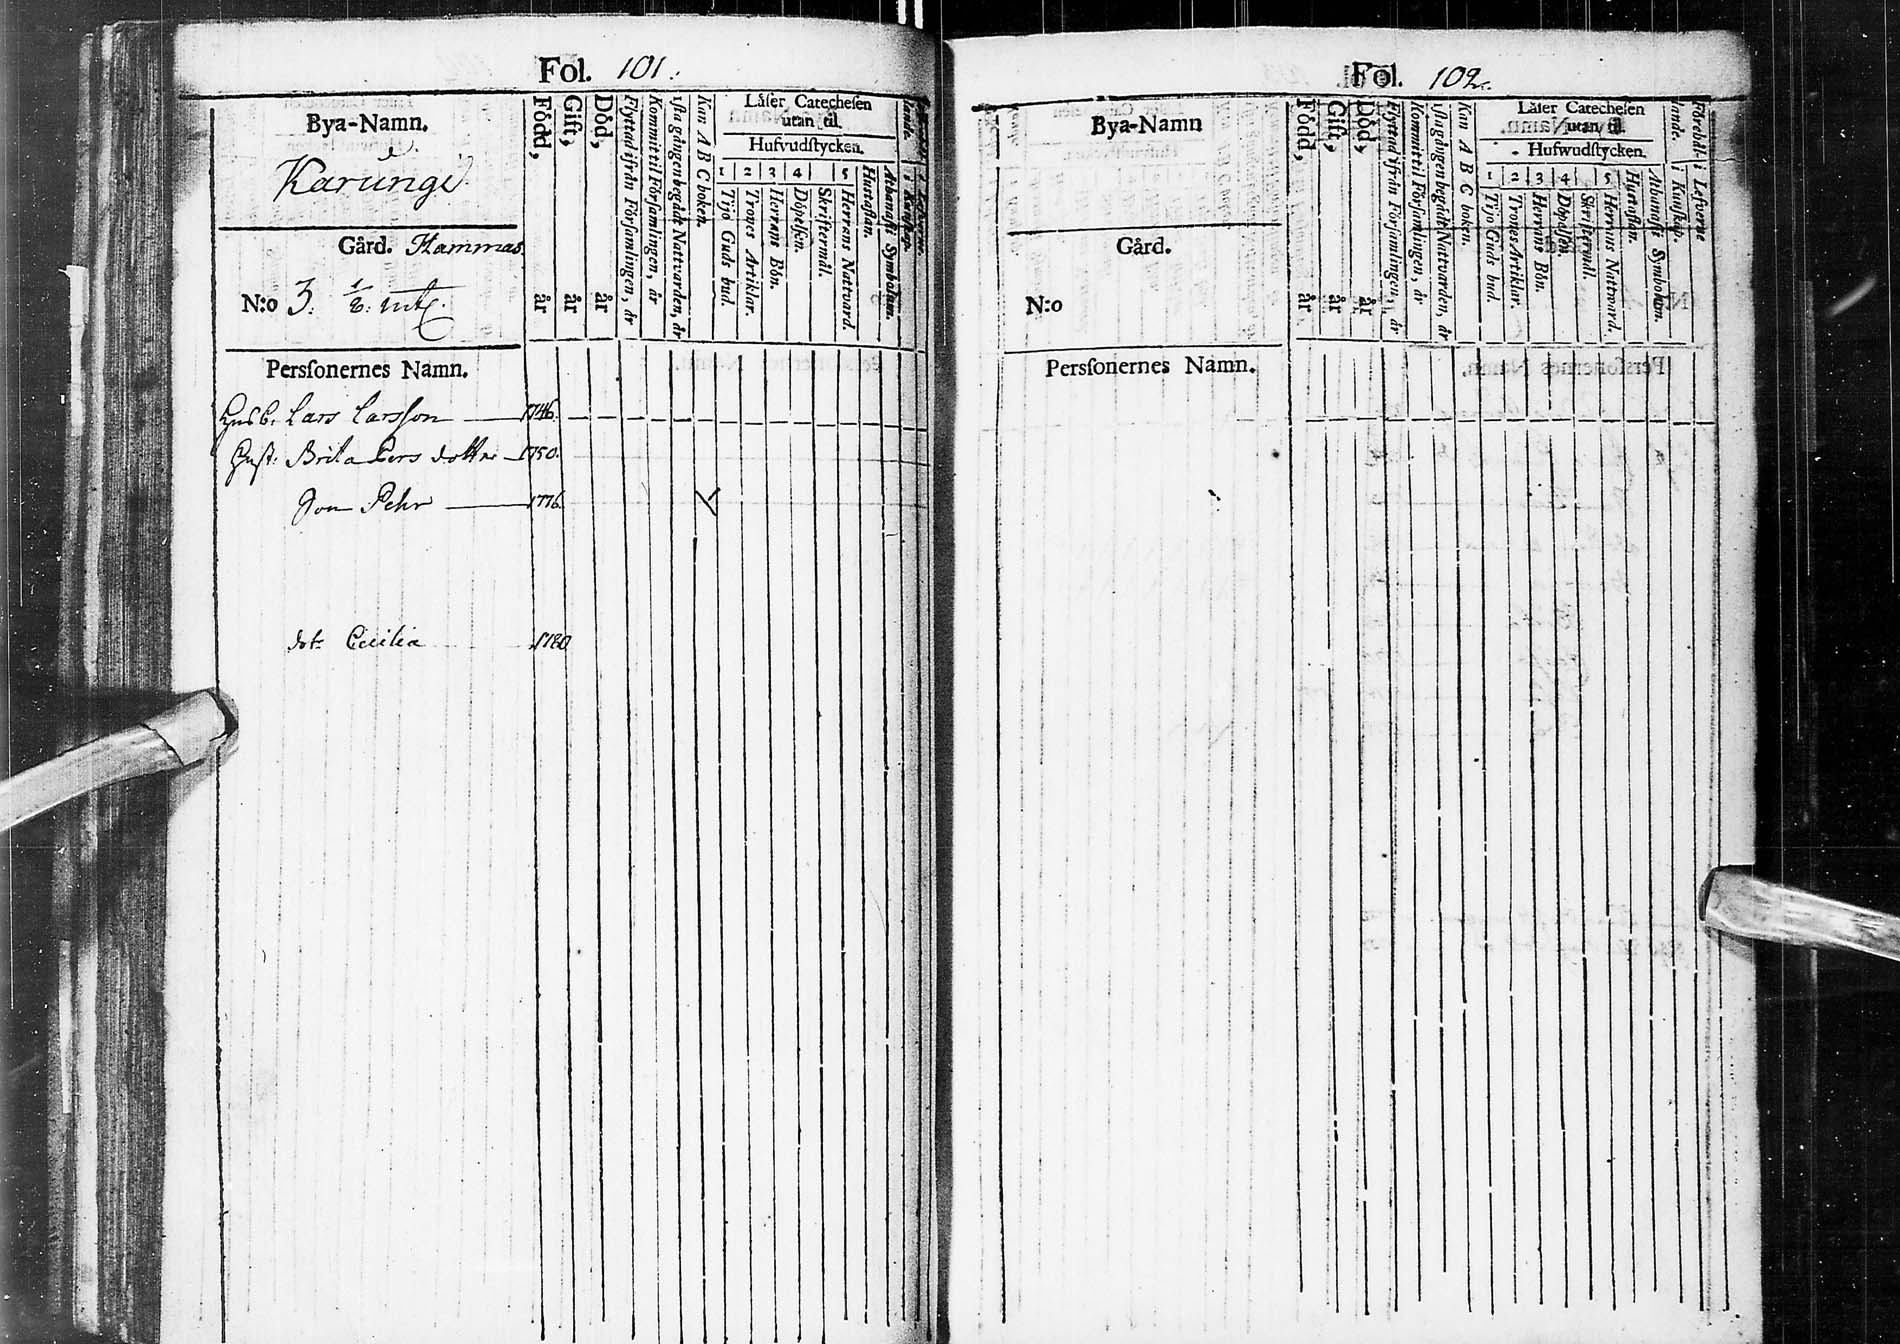 Fol. 101.
Bya-Namn.
Karungi
Gård. Hammas.
N:o 3. 1/8. mtl.
Persſonernes Namn.
Född, år
Giſt, år
Död, år
Flyttad ifrån Förſamlingen, år
Kommit til Förſamlingen, år
1ſta gången begådt Nattvarden, år
Kan A B C boken.
Låſer Catecheſen
utan til.
Hufvudſtycken.
1 2 3 4 5
Tijo Guds bud.
Trones Artiklar.
Herrans Bön.
Döpelſen.
Skriftermål.
Herrans Nattvard.
Huſtaflan.
Athanaſii Symbolum.
i Kunſkap.
Husb. Lars Larsſon 1746.
Huſt. Brita Pers dotter 1750.
Son Pehr 1776.
dot. Cecilia 1780
Fol. 102.
Bya-Namn
Gård.
N:o
Persſonernes Namn.
Född, år
Giſt, år
Död, år
Flyttad ifrån Förſamlingen, år
Kommit til Förſamlingen, år
1ſta gången begådt Nattvarden, år
Kan A B C boken.
Låſer Catecheſen
utan til.
Hufwudſtycken.
1 2 3 4 5
Tijo Guds bud.
Trones Artiklar.
Herrans Bön.
Döpelſen.
Skriftermål.
Herrans Nattward.
Huſtaflan.
Athanaſii Symbolum.
i Kunſkap.
i Lefverne